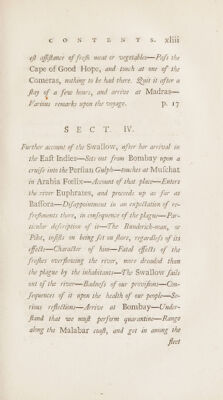 CONTENTS. xliii
est assistance of fresh meat or vegetables—Pass the
Cape of Good Hope, and touch at one of the
Comeras, nothing to be had there. Quit it after a
stay of a few hours, and arrive at Madras—
Various remarks upon the voyage. p. 17
SECT. IV.
Further account of the Swallow, after her arrival in
the East Indies—Sets out from Bombay upon a
cruise into the Persian Gulph—touches at Muschat
in Arabia Fœlix—Account of that place—Enters
the river Euphrates, and proceeds up as far as
Bassora—Disappointment in an expectation of re-
freshments there, in consequence of the plague—Par-
ticular description of it—The Bundrick-man, or
Pilot, insists on being set on shore, regardless of its
effects—Character of him—Fatal effects of the
freshes overflowing the river, more dreaded than
the plague by the inhabitants—The Swallow sails
out of the river—Badness of our provisions—Con-
sequences of it upon the health of our people—Se-
rious reflections—Arrive at Bombay—Under-
stand that we must perform quarantine—Range
along the Malabar coast, and get in among the
fleet